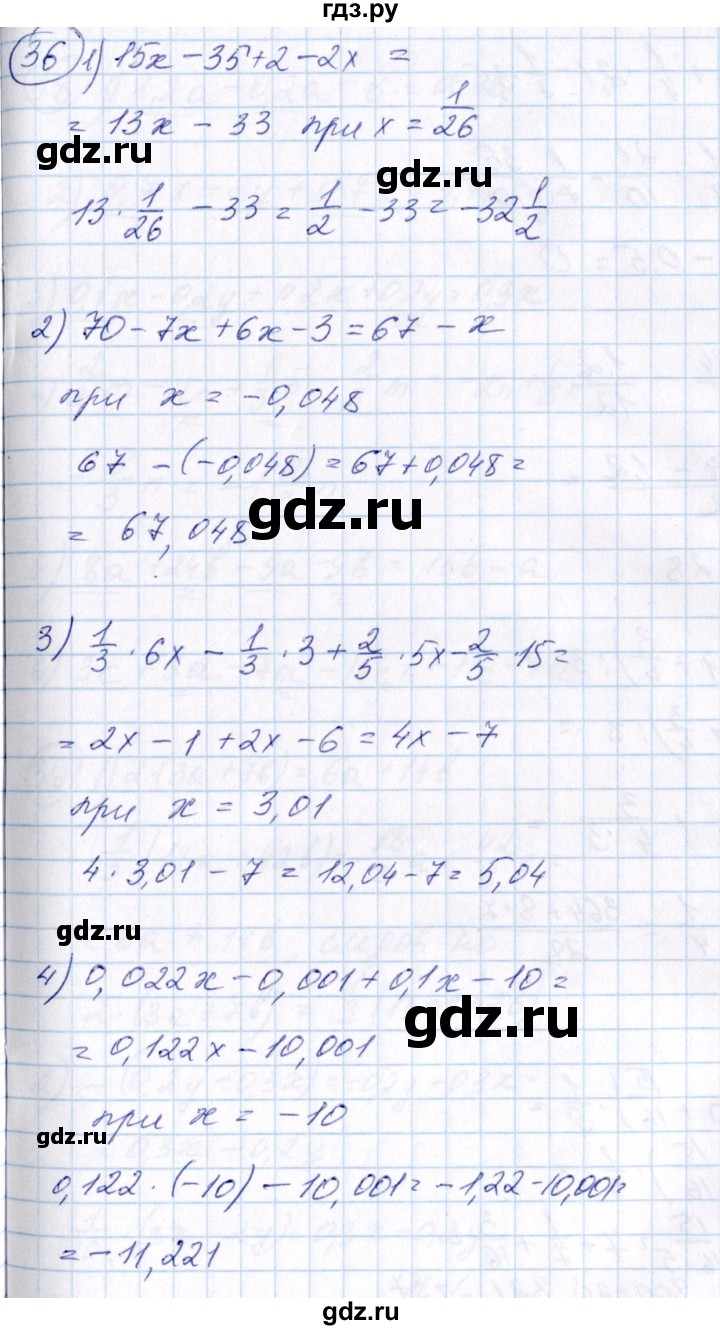 гдз.ру
36 1) 15x - 35 + 2 - 2x =
= 13x - 33 при x = 1/26
gdz.ru
gdz.ru
13 · 1/26 - 33 = 1/2 - 33 = -32 1/2
2) 70 - 7x + 6x - 3 = 67 - x
при x = -0,048
67 - (-0,048) = 67 + 0,048 =
gdz.ru
= 67,048
3) 1/3 · 6x - 1/3 · 3 + 2/5 · 5x - 2/5 · 15 =
= 2x - 1 + 2x - 6 = 4x - 7
при x = 3,01
4 · 3,01 - 7 = 12,04 - 7 = 5,04
gdz.ru
4) 0,022x - 0,001 + 0,1x - 10 =
gdz.ru
= 0,122x - 10,001
при x = -10
gdz.ru
0,122 · (-10) - 10,001 = -1,22 - 10,001 =
= -11,221
gdz.ru